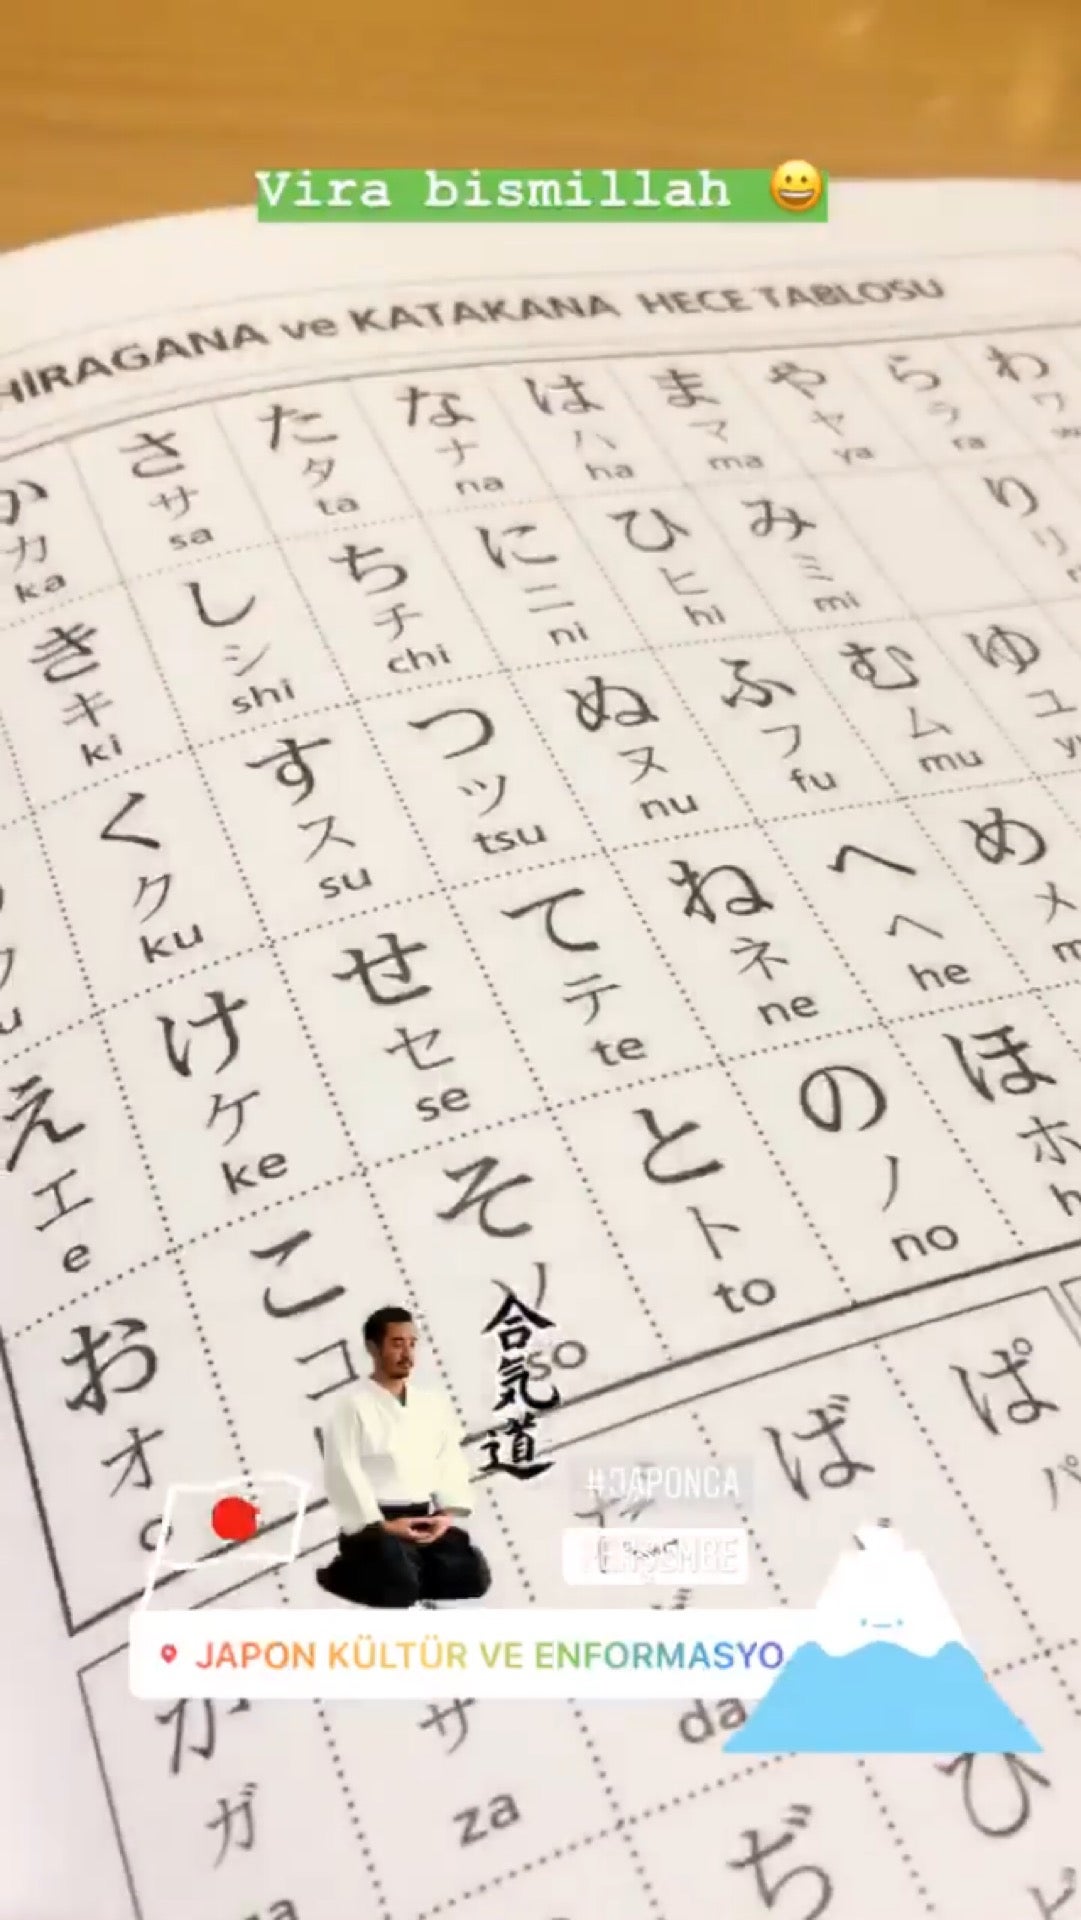 Vira bismillah 😀
HİRAGANA ve KATAKANA HECE TABLOSU
か さ た な は ま や ら わ
カ サ タ ナ ハ マ ヤ ラ ワ
ka sa ta na ha ma ya ra
き し ち に ひ み り
キ シ チ ニ ヒ ミ リ
ki shi chi ni hi mi
く す つ ぬ ふ む ゆ
ク ス ツ ヌ フ ム ユ
ku su tsu nu fu mu
え け せ て ね へ め
エ ケ セ テ ネ ヘ メ
e ke se te ne he
お こ そ と の ほ
オ コ ソ ト ノ ホ
so to no
合気道
ば ぱ
#JAPONCA
PERŞEMBE
JAPON KÜLTÜR VE ENFORMASYO
ガ ザ
za da
ぢ